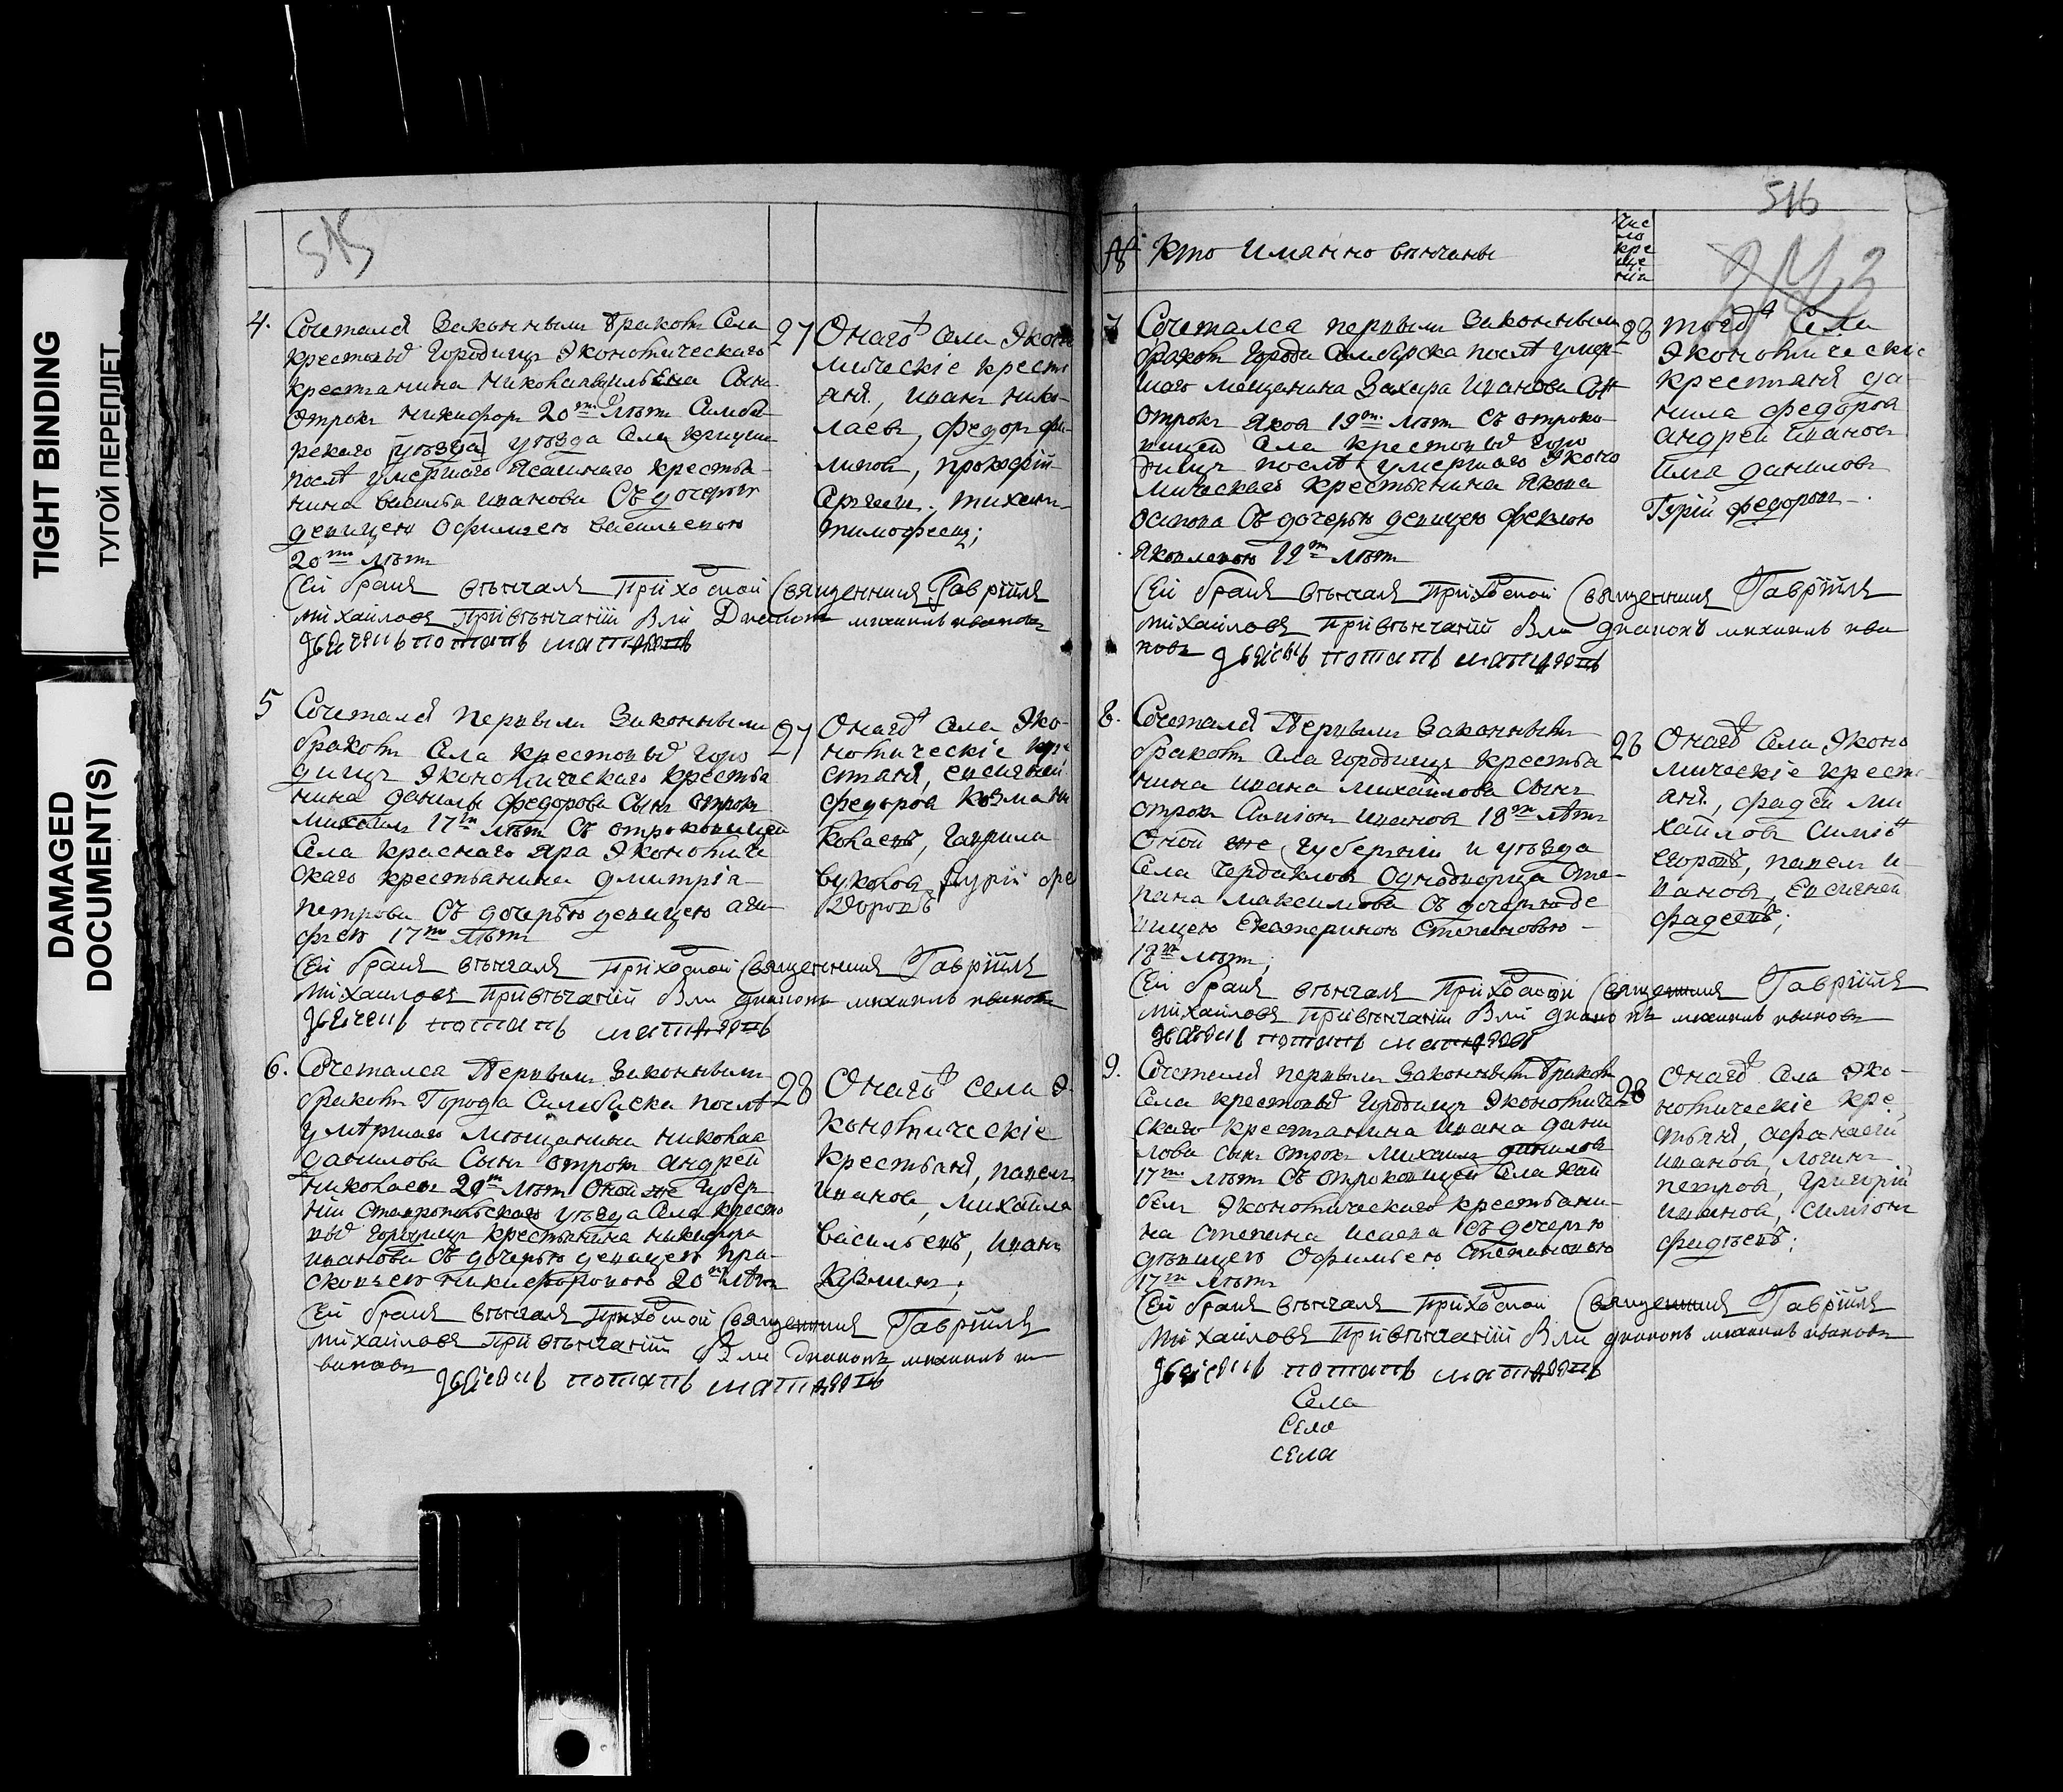 TIGHT BINDING
ТУГОЙ ПЕРЕПЛЕТ
DAMAGED
DOCUMENT(S)
515
4. Сочетался Законнымъ бракомъ Села
крестовыхъ Городищъ Экономическаго
крестьянина Николая Сынъ
Отрокъ Никифоръ 20ти Лѣтъ Симбир
рскаго уѣзда уѣзда Села
послѣ умершаго Ясашнаго крестья
нина василья иванова Съ дочерью
девицею Офимьею васильевою
20ти Лѣтъ
27
Онаго Села Эконо
мическіе крестья
яня, иванъ нико
лаевъ, федоръ фи
липовъ, прокофій
тихонъ
тимофеевъ;
Сей бракъ вѣнчалъ приходской Священникъ Гавріилъ
Михайловъ При вѣнчаніи были Дьяконъ михаилъ ивановъ
5 Сочетался первымъ Законнымъ
бракомъ Села крестовыхъ горо
дищъ Экономическаго крестья
нина данилы федорова Сынъ отрокъ
Михаилъ 17ти лѣтъ Съ отроковицей
Села Краснаго яра Экономиче
скаго крестьянина дмитрія
петрова Съ дочерью девицею ага
фьею 17ти Лѣтъ
27
Онаго Села Эко
номическіе кре
стьяня, евсигней
федоровъ Козма ни
колаевъ, гаврила
вуколовъ гурій фе
доровъ
Сей бракъ вѣнчалъ Приходской Священникъ Гавріилъ
Михайловъ При вѣнчаніи были дьяконъ михаилъ ивановъ
6. Сочетался Первымъ Законнымъ
бракомъ Города Симбирска послѣ
умѣршаго мещанина николая
данилова Сынъ отрокъ андрей
николаевъ 20ти Лѣтъ Оной же губер
ніи Ставропольскаго уѣзда Села кресто
выхъ городищъ крестьянина никифора
иванова Съ дочерью девицею пра
сковьею никифоровою 20ти Лѣтъ
28
Онаго Села Э
кономическіе
крестьяня, павелъ
ивановъ, михайла
васильевъ, иванъ
Сей бракъ вѣнчалъ Приходской Священникъ Гавріилъ
Михайловъ При вѣнчаніи были Дьяконъ михаилъ и
вановъ
516
Кто Имянно вѣнчаны
Чис
ло
кре
ще
нія
7 Сочетался первымъ Законнымъ
бракомъ Города Симбирска послѣ умер
шаго мещанина Захара Иванова Сынъ
отрокъ Яковъ 19ти Лѣтъ Съ отроко
вицей Села крестовыхъ горо
дищъ послѣ умершаго Эконо
мическаго крестьянина Якова
осипова Съ дочерью девицею феклою
яковлевою 19ти Лѣтъ
28
того Села
Экономическіе
крестьяня да
нила федоровъ
андрей ивановъ
илья даниловъ
Гурій федоровъ.
Сей бракъ вѣнчалъ Приходской Священникъ Гавріилъ
Михайловъ При вѣнчаніи были дьяконъ михаилъ ива
новъ
8. Сочетался Первымъ Законнымъ
бракомъ Села городищъ крестья
нина ивана михайлова Сынъ
отрокъ Симіонъ ивановъ 18ти лѣтъ
Оной же губерніи и уѣзда
Села Чердаковъ Однодворца Сте
пана максимова Съ дочерью де
вицею Екатериною Степановою
18ти лѣтъ;
28
Онаго Села Эконо
мическіе крестья
яня, фадей ми
хайловъ Симіонъ
егоровъ, павелъ и
вановъ, Евсигней
фадеевъ;
Сей бракъ вѣнчалъ Приходской Священникъ Гавріилъ
Михайловъ При вѣнчаніи были дьяконъ михаилъ ивановъ
9. Сочетался первымъ Законнымъ бракомъ
Села крестовыхъ городищъ Экономиче
скаго крестьянина Ивана дани
лова сынъ отрокъ Михаилъ
17ти лѣтъ Съ отроковицей Села Кай
белъ Экономическаго крестьяни
на Степана исаева Съ дочерью
дѣвицею Офимьею Степановою
17ти Лѣтъ
28
Онаго Села Эко
номическіе кре
стьяня, афанасей
ивановъ, логинъ
петровъ, григорій
ивановъ, симіонъ
фадѣевъ;
Сей бракъ вѣнчалъ Приходской Священникъ Гавріилъ
Михайловъ При вѣнчаніи были дьяконъ михаилъ ивановъ
Села
Села
Села